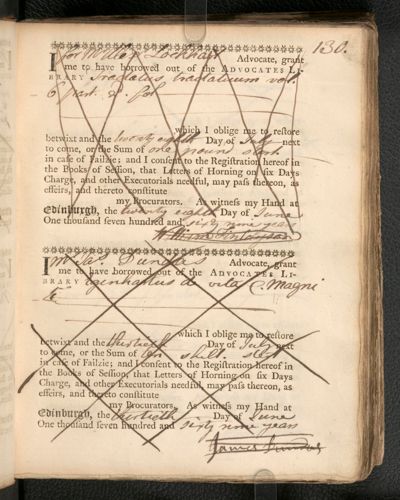 130.
I for William Lockhart Advocate, grant
me to have borrowed out of the ADVOCATES LI-
BRARY Tractatus tractatuum vol.
6 part. 2. fol
which I oblige me to restore
betwixt and the twenty eighth Day of July next
to come, or the Sum of one pound sterl
in case of Failzie; and I consent to the Registration hereof in
the Books of Session, that Letters of Horning on six Days
Charge, and other Executorials needful, may pass thereon, as
effeirs, and thereto constitute
my Procurators. As witness my Hand at
Edinburgh, the twenty eighth Day of June
One thousand seven hundred and sixty nine years
I Mr Ja. Dundas Advocate, grant
me to have borrowed out of the ADVOCATES LI-
BRARY Eginhartus de vita C. Magni
which I oblige me to restore
betwixt and the thirtieth Day of July next
to come, or the Sum of ten shill. sterl
in case of Failzie; and I consent to the Registration hereof in
the Books of Session, that Letters of Horning on six Days
Charge, and other Executorials needful, may pass thereon, as
effeirs, and thereto constitute
my Procurators. As witness my Hand at
Edinburgh, the thirtieth Day of June
One thousand seven hundred and sixty nine years
James Dundas